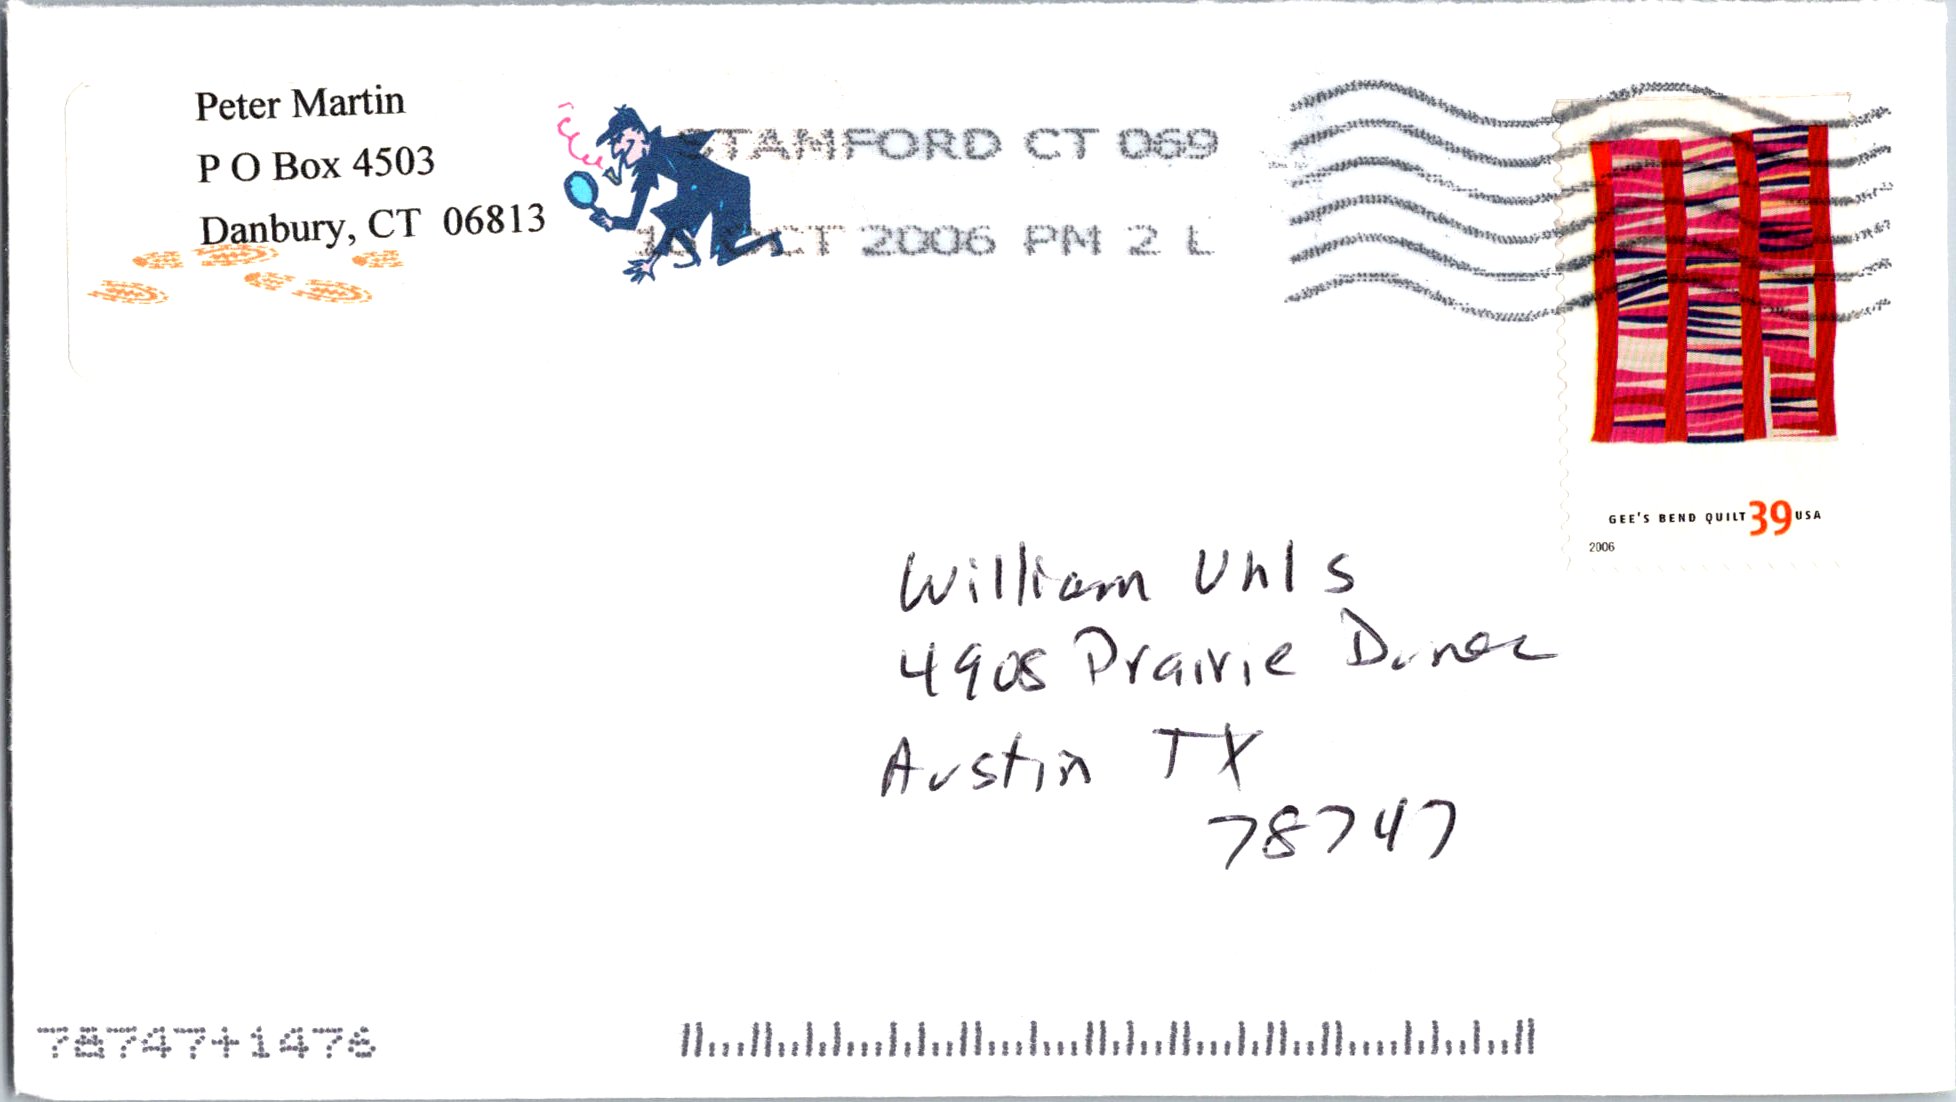 Peter Martin
P O Box 4503
Danbury, CT 06813
STAMFORD CT 069
OCT 2006 PM 2 L
GEE'S BEND QUILT 39 USA
2006
William Uhls
4908 Prairie Dunes
Austin TX
78747
78747+1476